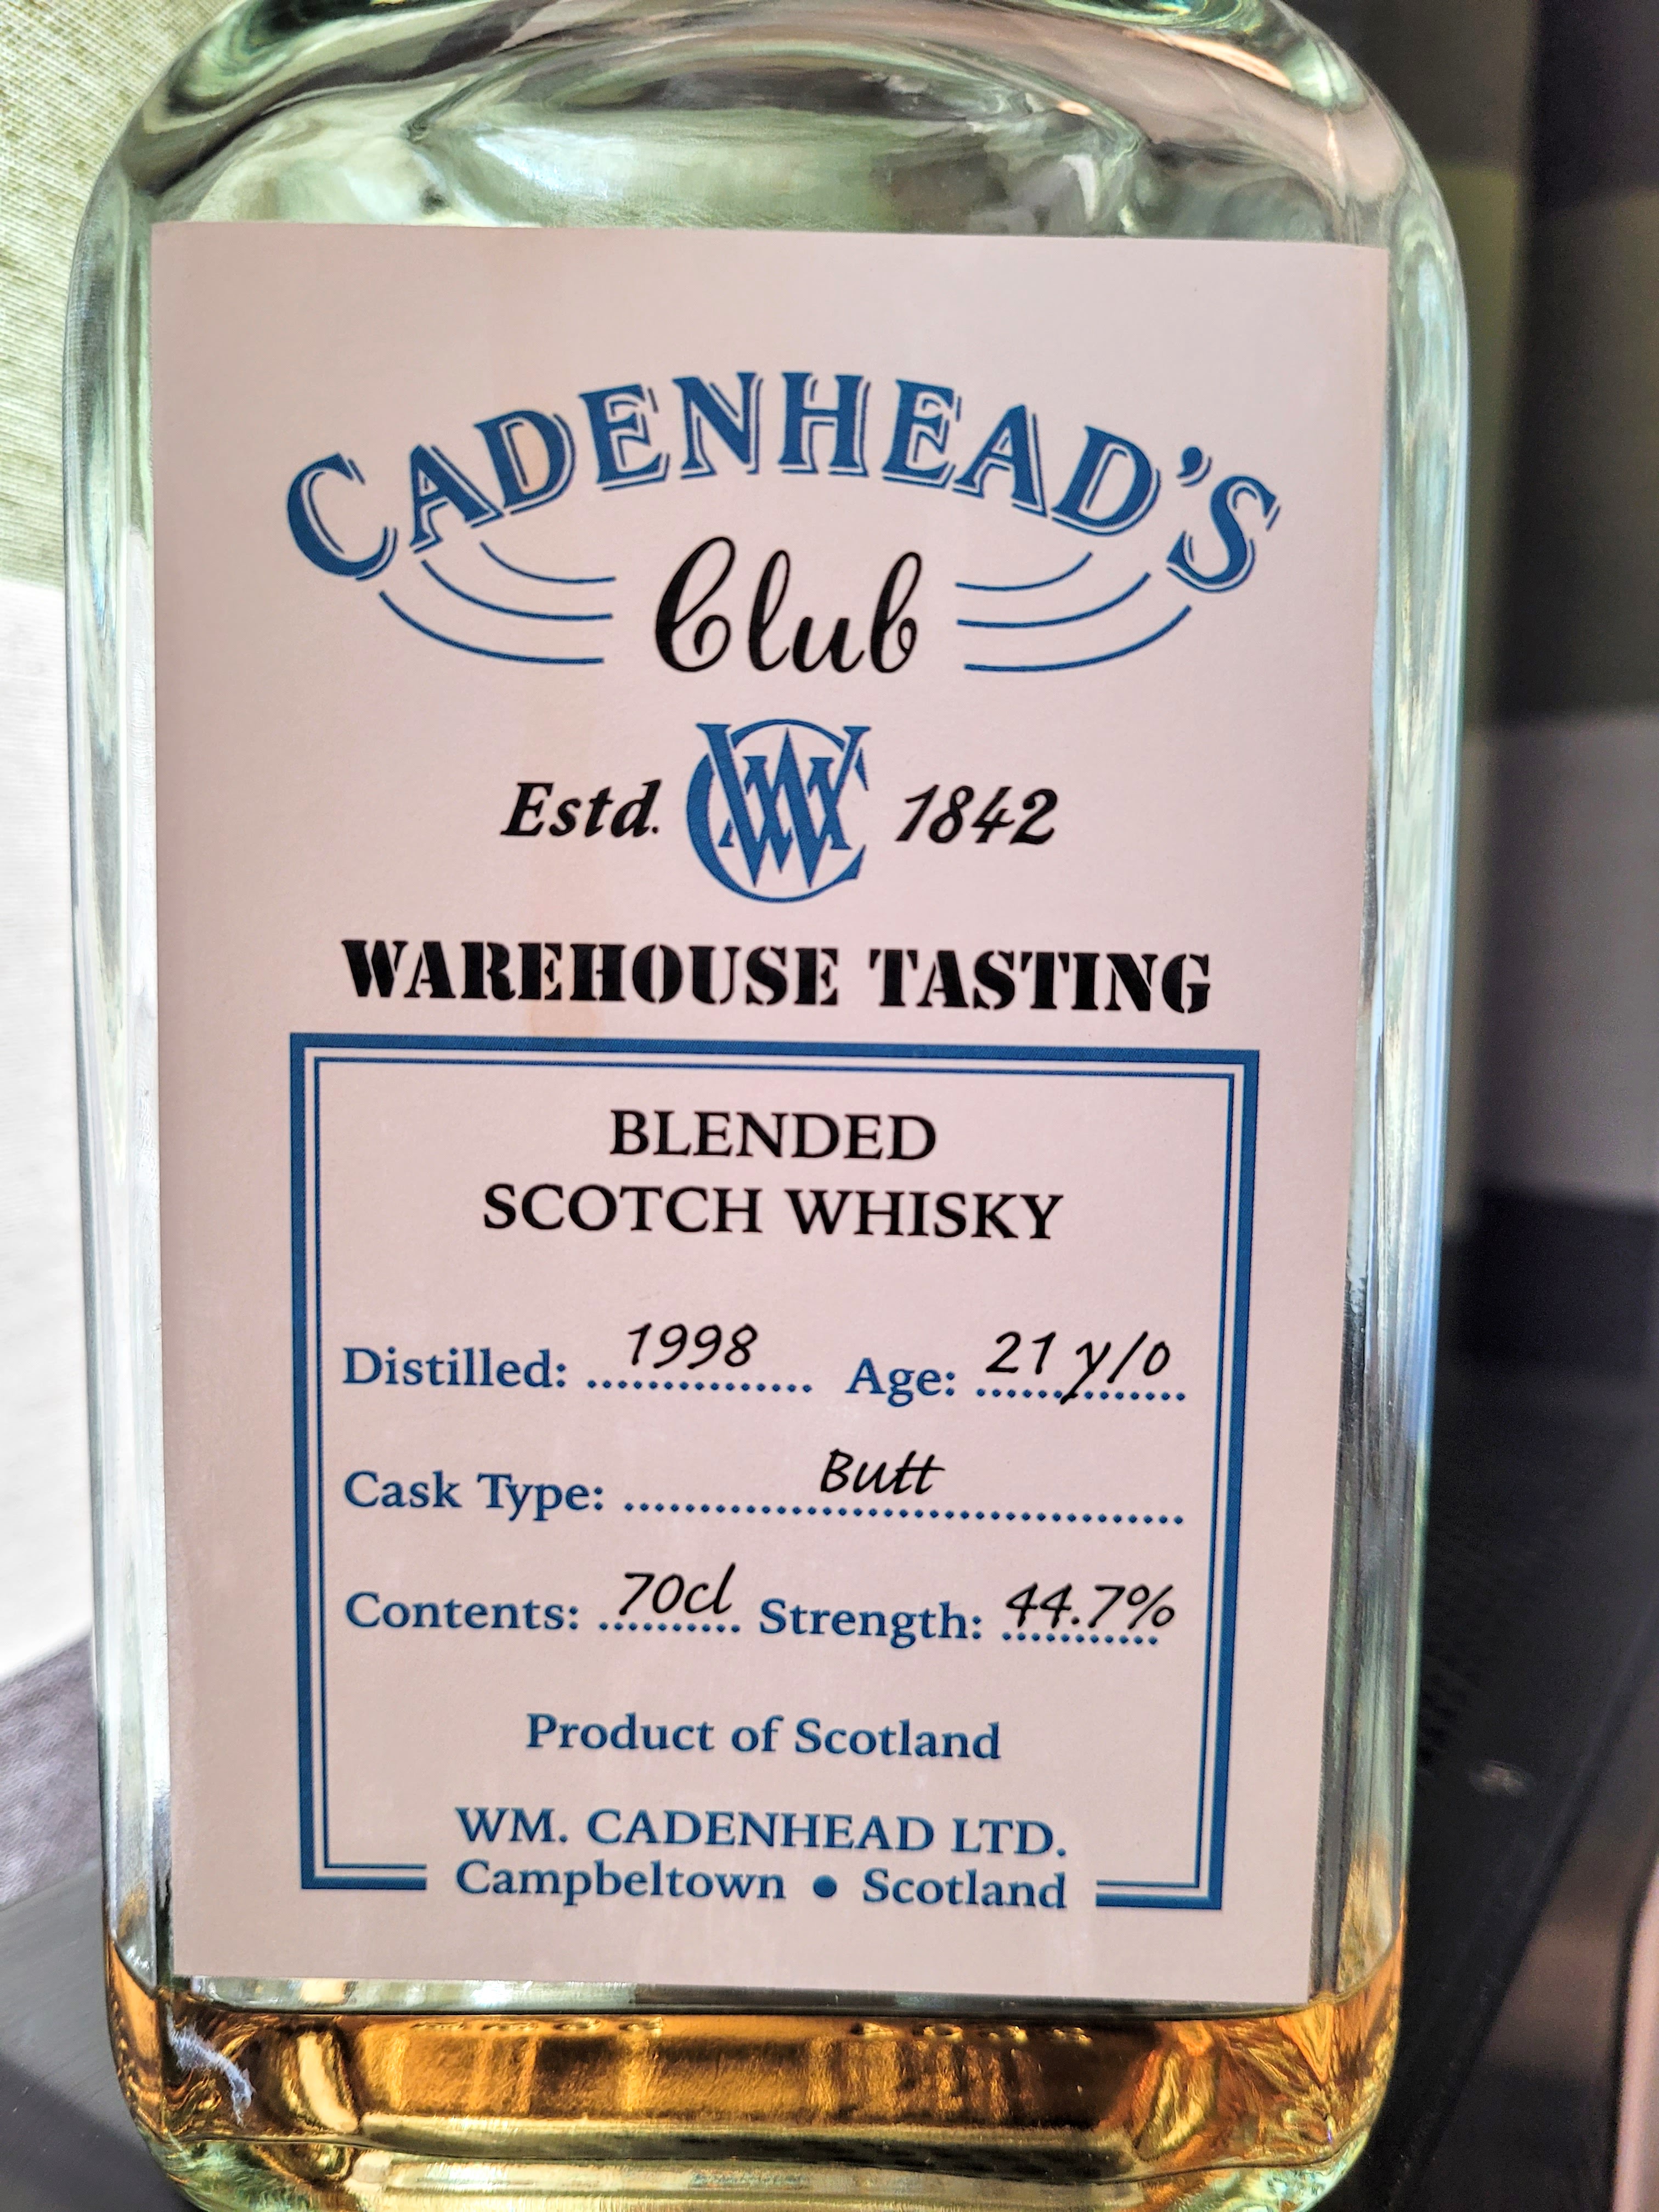 CADENHEAD'S
Club
Estd. WC 1842
WAREHOUSE TASTING
BLENDED
SCOTCH WHISKY
Distilled: 1998 Age: 21 y/o
Cask Type: Butt
Contents: 70cl Strength: 44.7%
Product of Scotland
WM. CADENHEAD LTD.
Campbeltown • Scotland